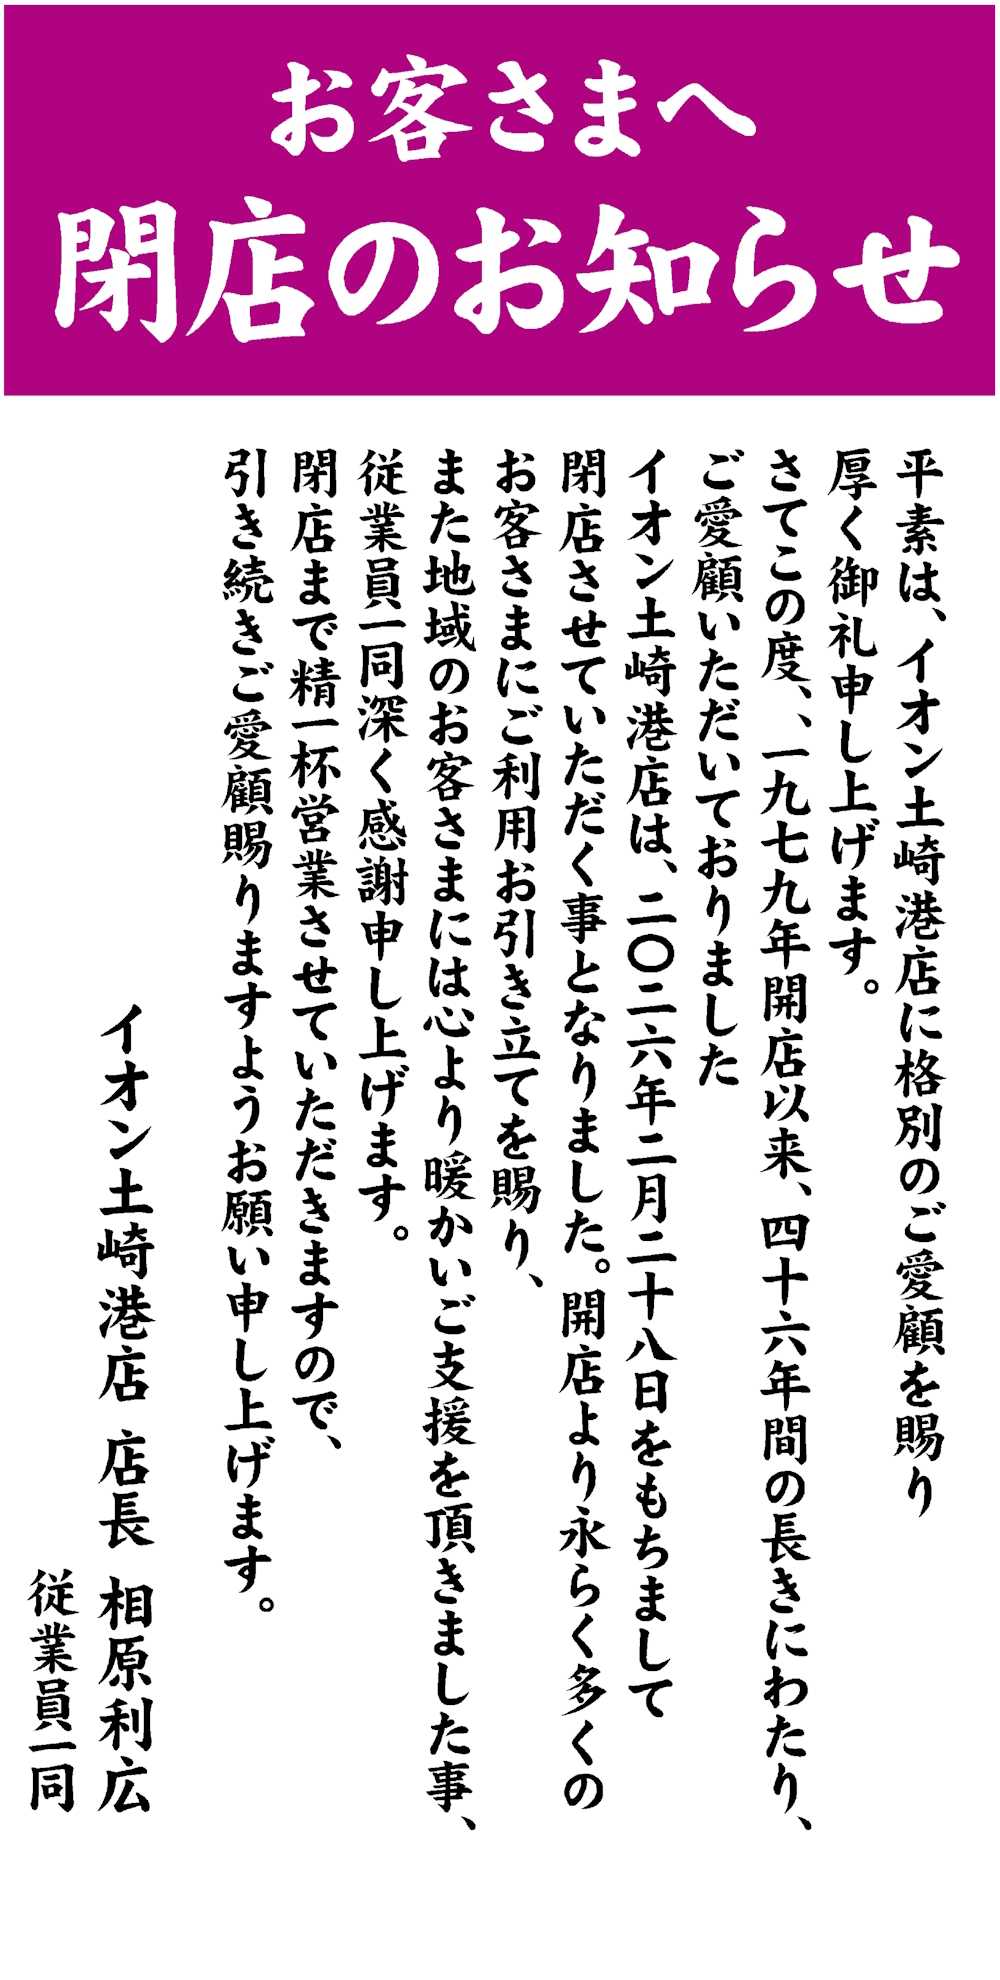 お客さまへ
閉店のお知らせ
平素は、イオン土崎港店に格別のご愛顧を賜り
厚く御礼申し上げます。
さてこの度、、一九七九年開店以来、四十六年間の長きにわたり、
ご愛顧いただいておりました
イオン土崎港店は、二〇二六年二月二十八日をもちまして
閉店させていただく事となりました。開店より永らく多くの
お客さまにご利用お引き立てを賜り、
また地域のお客さまには心より暖かいご支援を頂きました事、
従業員一同深く感謝申し上げます。
閉店まで精一杯営業させていただきますので、
引き続きご愛顧賜りますようお願い申し上げます。
イオン土崎港店 店長 相原利広
従業員一同